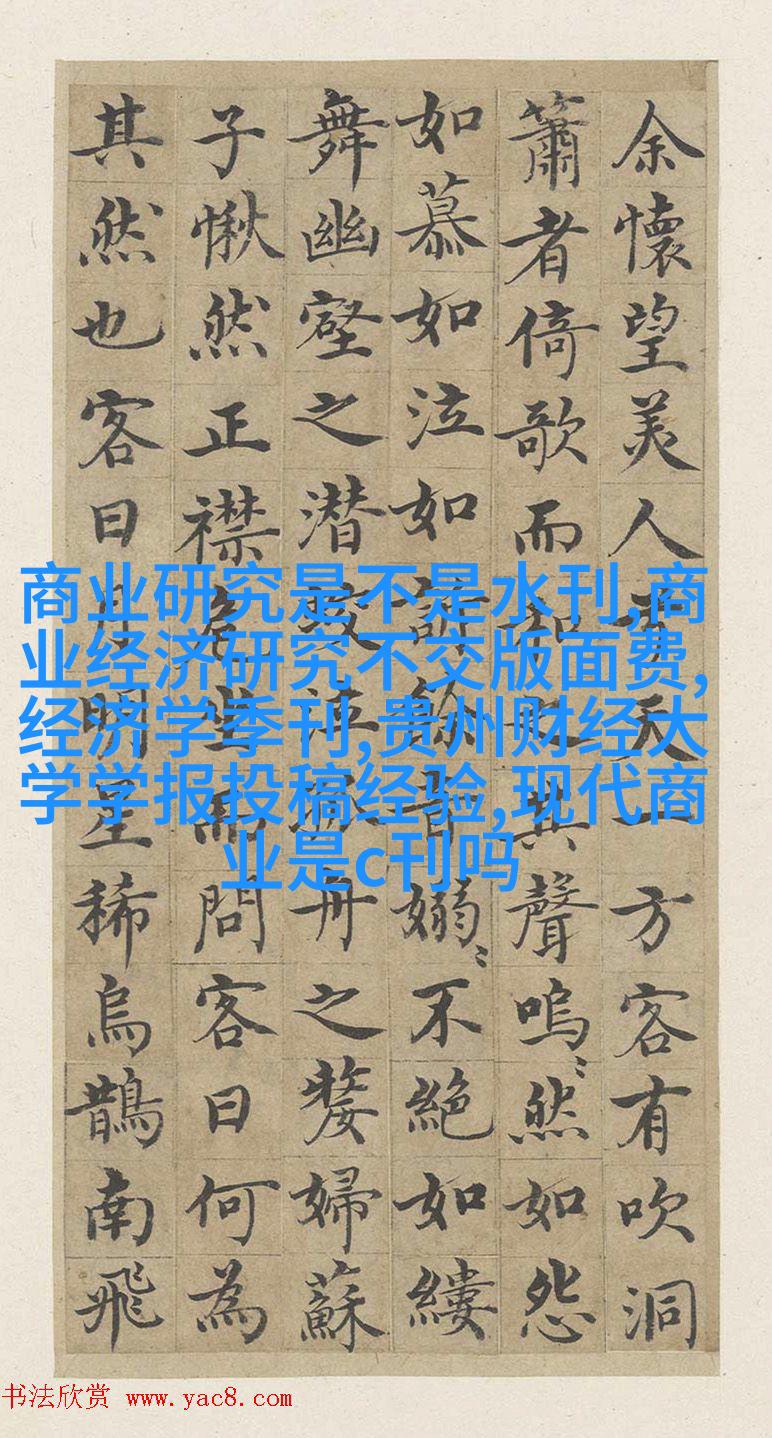 余懷望美人兮天一方客有吹洞
簫者倚歌而和之其聲嗚〻然如怨
如慕如泣如訴餘音嫋〻不絕如縷
舞幽壑之潛蛟泣孤舟之嫠婦蘇
子愀然正襟危坐而問客曰何為
其然也客曰月明星稀烏鵲南飛
商业研究是不是水刊,商
业经济研究不交版面费,
经济学季刊,贵州财经大
学学报投稿经验,现代商
业是c刊吗
书法欣赏 www.yac8.com